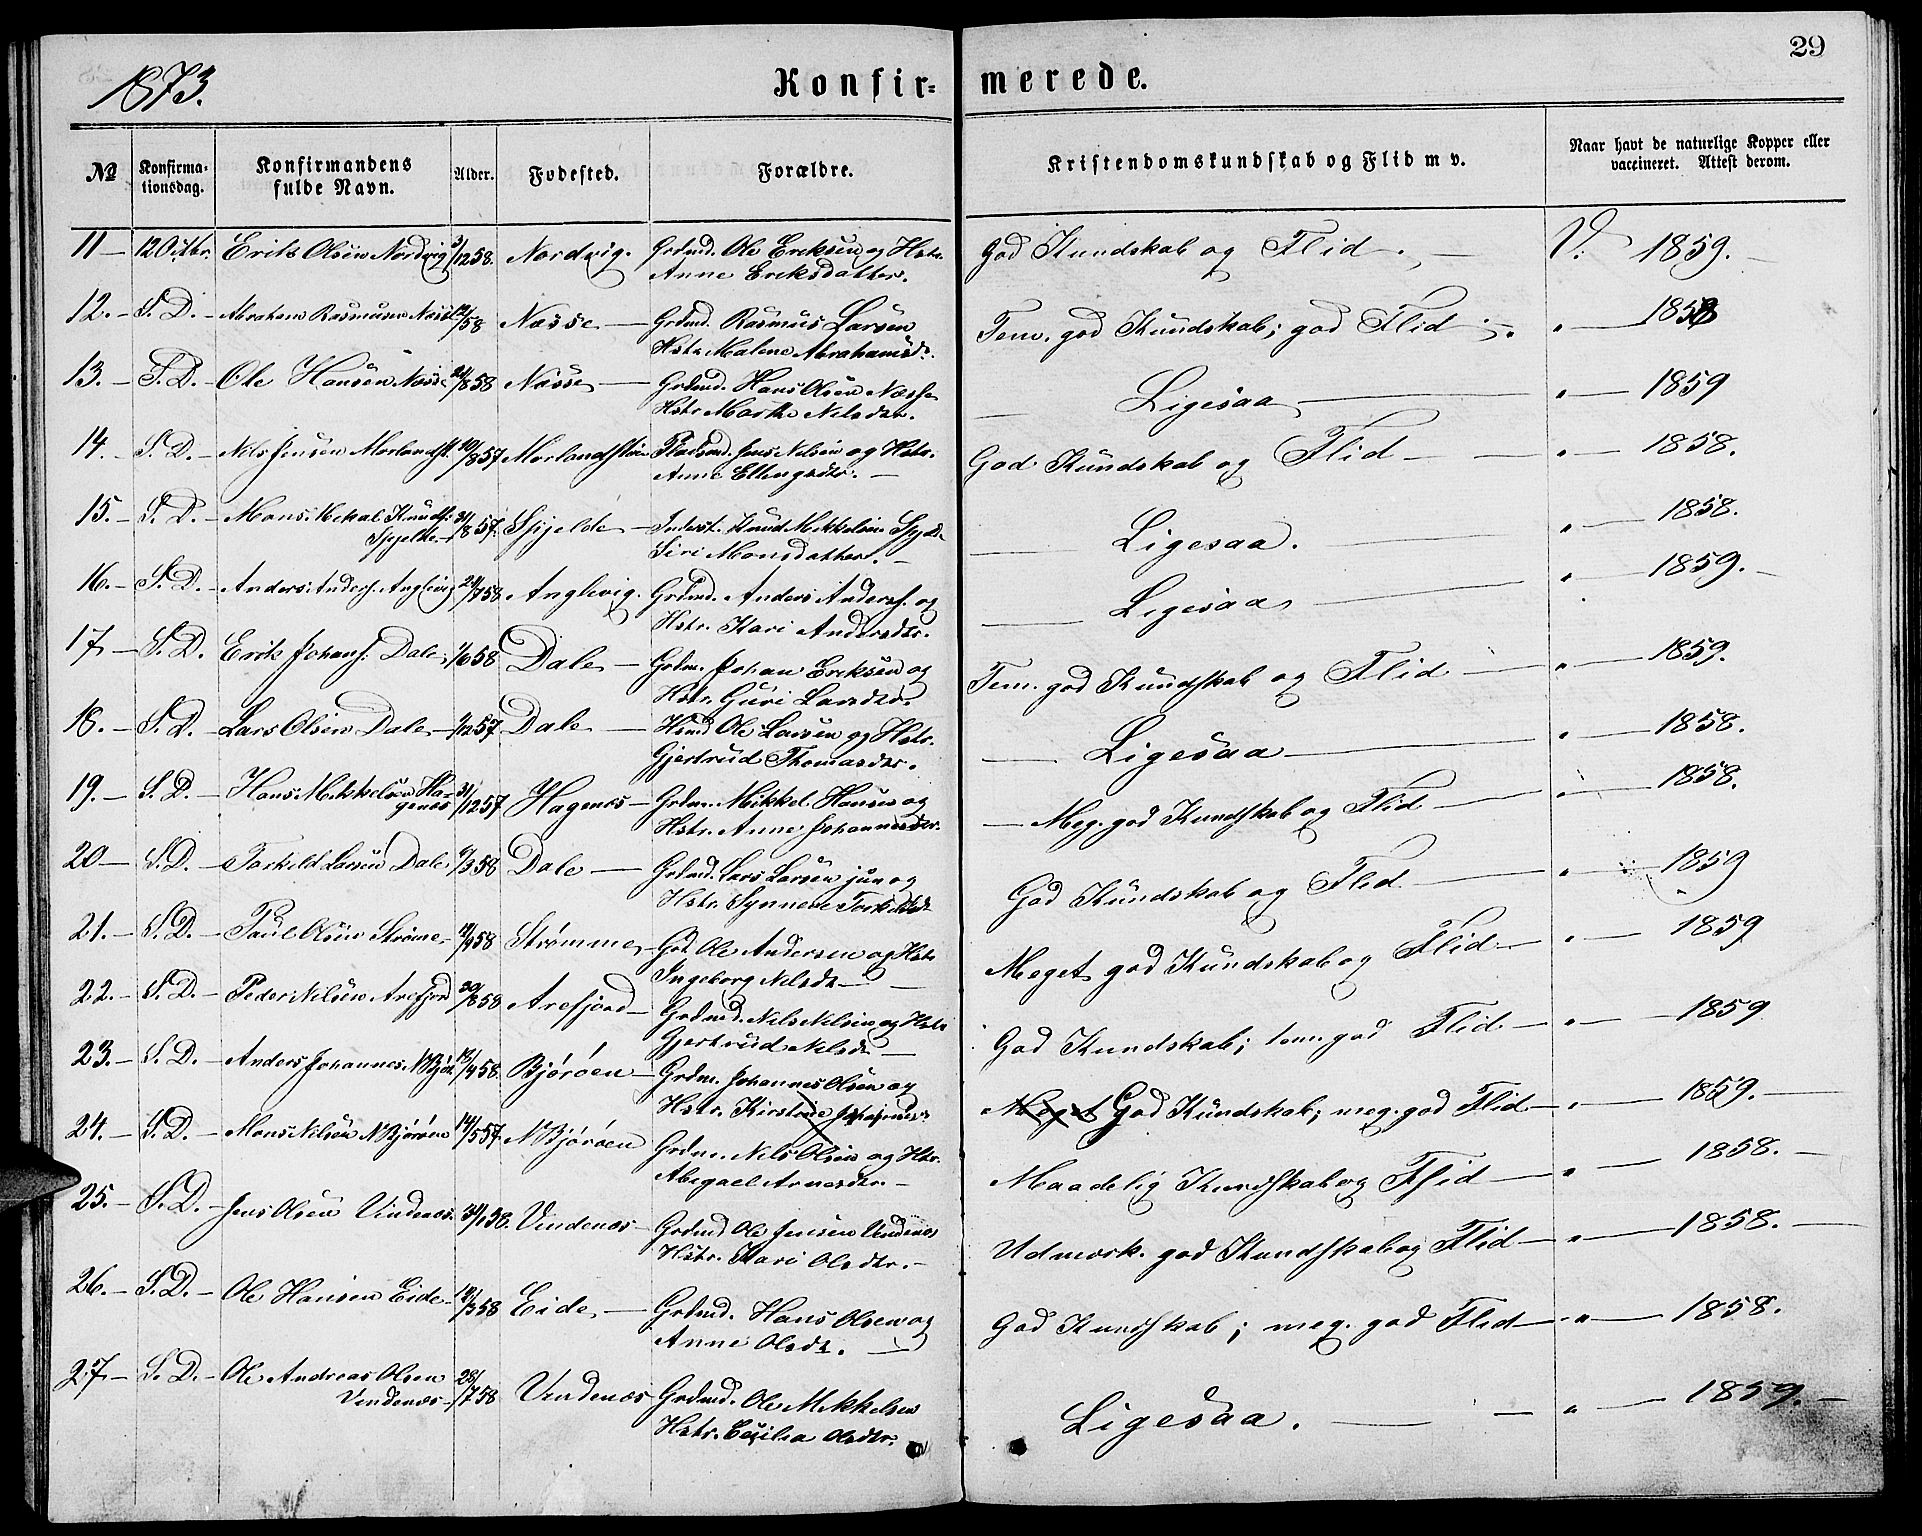 29
1873. Konfir= merede.
№ Konfirma- tionsdag. Konfirmandens fulde Navn. Alder. Fodested. Forældre. Kristendomskundskab og Flid m v. Naar havt de naturlige Kopper eller vaccineret. Attest derom.
11 — 12 Octbr. Erik Olsen Nordvig 3/12 58. Nordvig. Grdmd. Ole Eriksen og Hstr. God Kundskab og Flid. — V. 1859. —
Anne Eriksdatter.
12. — S. D. — Abraham Rasmusen Næsse /58 Næsse — Grdmd. Rasmus Larsen Tem. god Kundskab; god Flid „ — 1858
Hstr. Malene Abrahamsdr.
13. — S. D. — Ole Hansen Næsse 24/8 58 Næsse — Grdmd. Hans Olsen Næsse — Ligesaa — „ — 1859
Hstr. Marthe Nilsdtr.
14. — S. D. — Nils Jensen Morlandsst. 10/8 57 Morlandsstøen Pladsmd. Jens Nilsen og Hstr. God Kundskab og Flid — „ — 1858.
Anne Ellingsdtr. —
15. — S. D. — Mons Mikal Knuds: 31/8 57. Spjelde — Inderst. Knud Mikkelsen Spjelde — Ligesaa. — „ — 1858.
Spjelde — Siri Monsdatter. —
16. — S. D. — Anders Anders. Anglevig 24/7 58 Anglevig. Grdmd. Anders Anders. og — Ligesaa — „ — 1859. —
Hstr. Kari Andersdtr.
17 — S. D. Erik Johans. Dale 1/6 58 Dale — Grdm. Johan Eriksen og Tem. god Kundskab og Flid — „ — 1859.
Hstr. Guri Larsdtr.
18. — S. D. — Lars Olsen Dale — /12 57. Dale — Hmd Ole Larsen og Hstr. — Ligesaa — „ — 1858.
Gjertrud Thomasdtr.
19. — S. D. — Hans Mikkelsen Ha- 31/12 57 Hagenes — Grdm. Mikkel Hansen og — Meg. god Kundskab og Flid — „ — 1858.
genes Hstr. Anne Johannesdtr.
20 — S. D. — Torkild Larsen Dale 6/3 58 Dale — Grdmd. Lars Larsen jun og God Kundskab og Flid — „ — 1859
Hstr. Synneve Torkildsd.
21. — S. D. — Paul Olsen Strømme 19/9 58 Strømme — Gd. Ole Andersen og Hstr Meget god Kundskab og Flid — „ — 1859
Ingeborg Nilsdr —
22. — S. D. — Peder Nilsen Arefjord 30/8 58 Arefjord — Grdmd. Nils Nilsen og Hstr God Kundskab; tem. god Flid — „ — 1859
Gjertrud Nilsdr —
23. — S. D. — Anders Johannes. N Bjør. 13/4 58. Bjørøen — Grdm. Johannes Olsen og Meget God Kundskab; meg. god Flid — „ — 1859. —
Hstr. Kirstine Johannesdr
24. — S. D. — Mons Nilsen N Bjørøen 14/5 57. N Bjørøen Grdm. Nils Olsen og Hstr. Maadelig Kundskab og Flid — „ — 1858. —
Abegael Arnesdtr. —
25. — S. D. — Jens Olsen Vindenæs. 31/1 58. Vindenæs — Grdmd Ole Jensen Vindenæs Udmærk. god Kundskab og Flid — „ — 1858. —
Hstr. Kari Olsdtr. —
26. — S. D. — Ole Hansen Eide — 19/3 58 Eide. — Grdmd. Hans Olsen og God Kundskab; meg. god Flid — „ — 1858.
Anne Olsdr. —
27 — S. D. — Ole Andreas Olsen 28/7 58 Vindenæs Grdmd. Ole Mikkelsen Ligesaa. — „ — 1859. —
Vindenæs — Hstr. Cecilia Olsdtr.